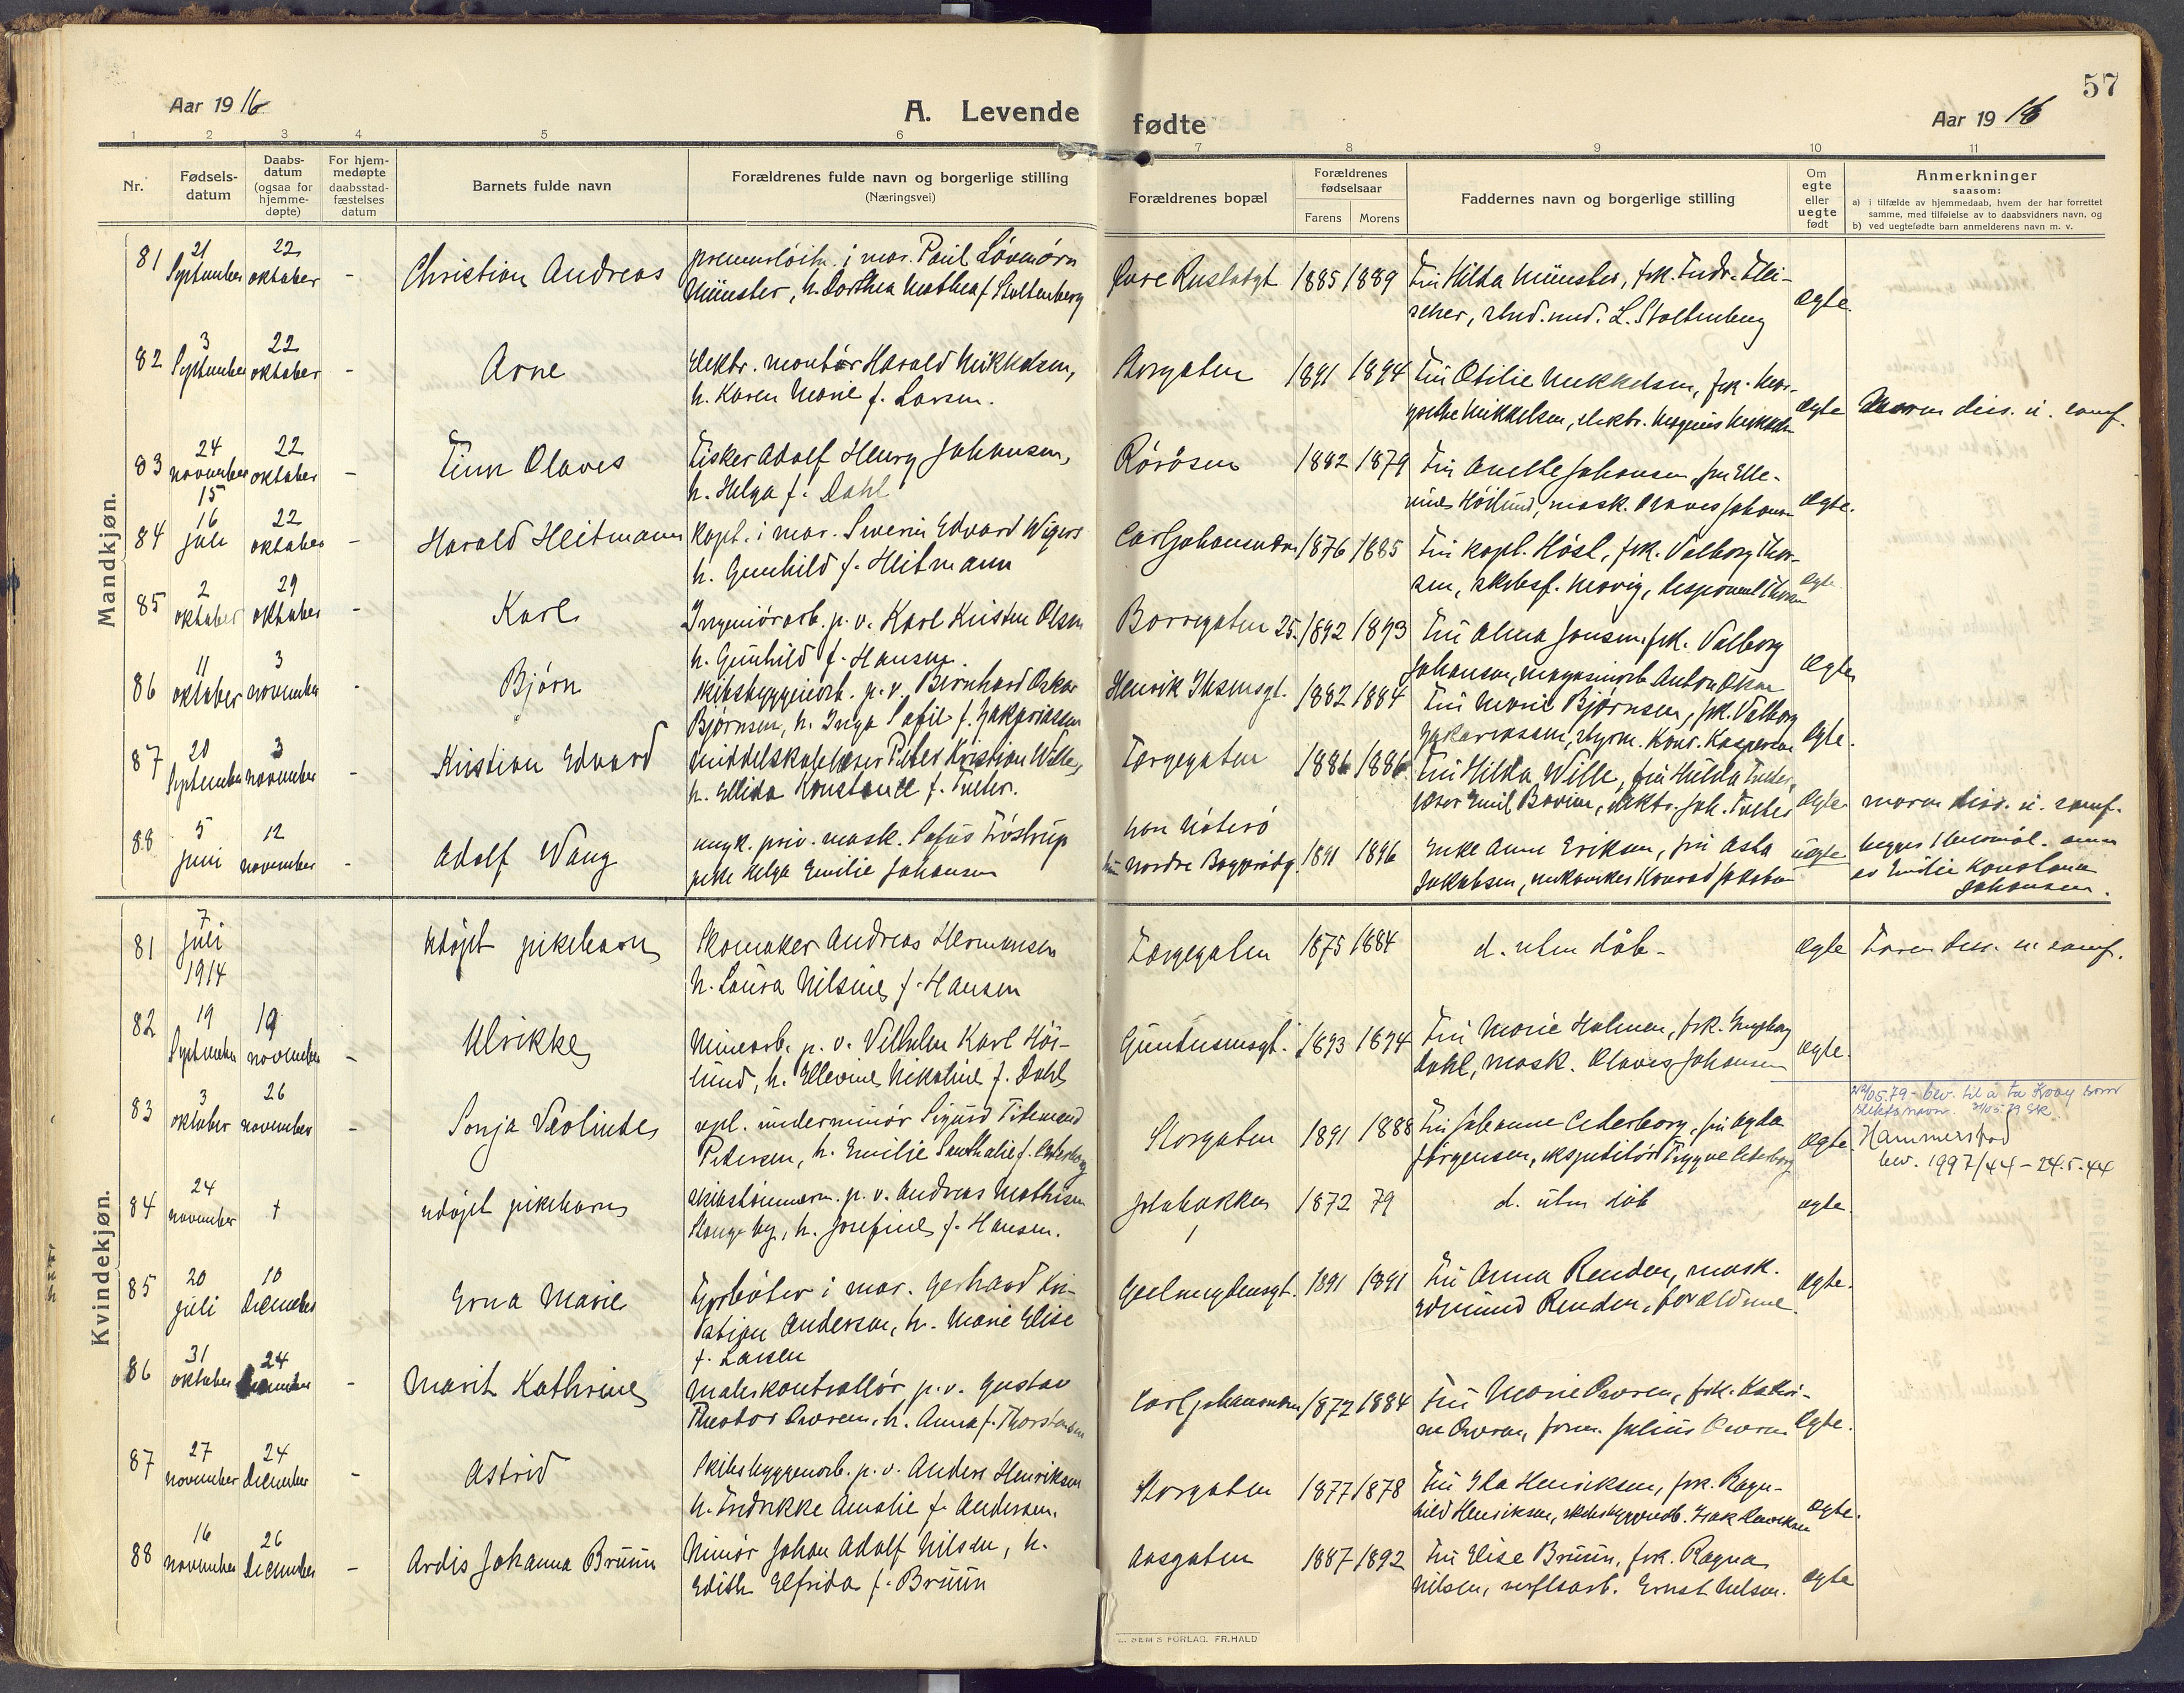 57
Aar 1916
A. Levende
fødte
Aar 1916
1 2 3 4 5 6 7 8 9 10 11
Nr.
Fødsels-
datum
Daabs-
datum
(ogsaa for
hjemme-
døpte)
For hjem-
medøpte
daabsstad-
fæstelses
datum
Barnets fulde navn
Forældrenes fulde navn og borgerlige stilling
(Næringsvei)
Forældrenes bopæl
Forældrenes
fødselsaar
Farens Morens
Faddernes navn og borgerlige stilling
Om
egte
eller
uegte
født
Anmerkninger
saasom:
a) i tilfælde av hjemmedaab, hvem der har forrettet
samme, med tilføielse av to daabsvidners navn, og
b) ved uegtefødte barn anmelderens navn m. v.
Mandkjøn.
81 21 September 22 oktober - Christian Andreas
i mar. Poul Løvenørn
Münster, h. Dorthea Mathea f. Stoltenberg
1885 1889 Fru Hilda Münster, frk. Fredr. Flei-
scher, stud. med. L. Stoltenberg
egte
82 3 September 22 oktober - Arne
Elektr. montør Harald Mikkelsen,
h. Karen Marie f. Larsen.
Storgaten 1891 1894 Fru Otilie Mikkelsen, frk. Mar-
grethe Mikkelsen, elektr. Mikkelsen
egte diss. u. samf.
83 24 november 15 22 oktober - Finn Olaves
Fisker Adolf Henry Johansen,
h. Helga f. Dahl
Røråsen 1882 1879 Fru Anette Johansen, fru Elle-
vine Høilund, mask. Olaves Johansen
egte.
84 16 juli 22 oktober - Harald Heitmann
Kapt. i mar. Severin Edvard Wigers
h. Gunhild f. Heitmann
1876 1885 Fru kapt. Høsl, frk. Valborg Thor-
sen, skibsf.
egte
85 2 oktober 29 oktober - Karl
Ingeniørarb. p. v. Karl Kristen Olsen
h. Gunhild f. Hansen.
Borregaten 25. 1892 1893 Fru Alma Jensen, frk. Valborg
Johansen, magasinarb. Anton Olsen
egte
86 11 oktober 3 november - Bjørn
Skibsbyggeriarb. p. v. Bernhard Oskar
Bjørnsen, h. Inga Sofie f. Zakariassen
Henrik Ibsensgt. 1882 1884 Fru Marie Bjørnsen, frk. Valborg
Zakariassen, styrm. Konr. Kaspersen
egte.
87 20 September 3 november - Kristian Edvard
Middelskolelærer Peter Kristian Wille,
h. Ellida Konstance f. Tveter.
Torvegaten 1886 1886 Fru Hilda Wille, fru Hilda Tveter,
elektr. Joh. Tveter
egte moren diss. u. samf.
88 5 juni 12 november - Adolf Wang
ungk. priv. mask. Sofus Trøstrup
pike Helga Emilie Johansen
han Nøterø
hun nordre 1891 1896 Enke Anne Eriksen, fru Asta
Jakobsen, mekaniker Konrad Jakobsen
uegte
ev Emilie Konstance
Johansen.
Kvindekjøn.
81 7 juli 1914 udøpt pikebarn
Skomaker Andreas Hermansen
h. Laura Nilsine f. Hansen
Torvegaten 1875 1884 d. uten dåb - egte Faren diss. u. samf.
82 19 September 19 november - Ulrikke
Minearb. p. v. Vilhelm Karl Høi-
lund, h. Ellevine Nikoline f. Dahl
1893 1894 Fru Marie Holmen, frk. Ingeborg
Dahl, mask. Olaves Johansen
egte.
83 3 oktober 26 november - Sonja Veolinde
vpl. underminør Sigurd Tidemand
Petersen, h. Emilie f. Cederborg
Storgaten 1891 1888 Fru Johanne Cederborg, fru Agda
Jørgensen, ekspeditør Trygve Cederborg
egte.
05.79 - bev. til å ta Kvay som
slektsnavn.
Hammerstad
bev. 1997/44 - 24.5.44
84 24 november + udøpt pikebarn
skibstømmerm. p. v. Andreas Mathisen
Stangeby, h. Josefine f. Hansen.
1872 79 d. uten dåb egte.
85 20 juli 10 December Erna Marie
Fyrbøter i mar. Gerhard Kri-
stian Andersen, h. Marie Elise
f. Larsen
1891 1891 Fru Anna Rendem, mask.
Edmund Rendem, forældrene.
egte.
86 31 oktober 24 December - Marit Kathrine
Malerkontrollør p. v. Gustav
Theodor, h. Anna f. Thorstensen
1872 1884 Fru Marie, frk. Kathri-
ne, form. Julius
egte.
87 27 november 24 December - Astrid
Skibsbyggerarb. p. v. Anders Henriksen
h. Fredrikke Amalie f. Andersen.
Storgaten 1877 1878 Fru Ida Henriksen, frk. Ragn-
hild Henriksen, skibsbyggerarb. Isak Henriksen
egte.
88 16 november 26 December - Ardis Johanna Bruun
Minør Johan Adolf Nilsen, h.
Edith Elfrida f. Bruun
Aasgaten 1887 1892 Fru Elise Bruun, frk. Ragna
Nilsen, verftsarb. Ernst Nilsen.
egte
E. SEM'S FORLAG, FR.HALD